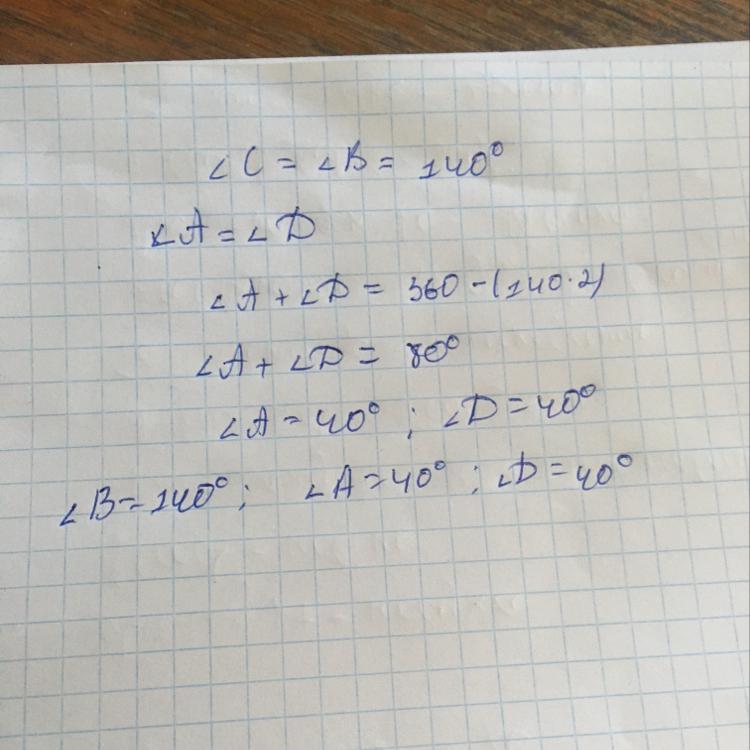 ∠C = ∠B = 140°
∠A = ∠D
∠A + ∠D = 360 - (140·2)
∠A + ∠D = 80°
∠A = 40° ; ∠D = 40°
∠B = 140° ; ∠A = 40° ; ∠D = 40°